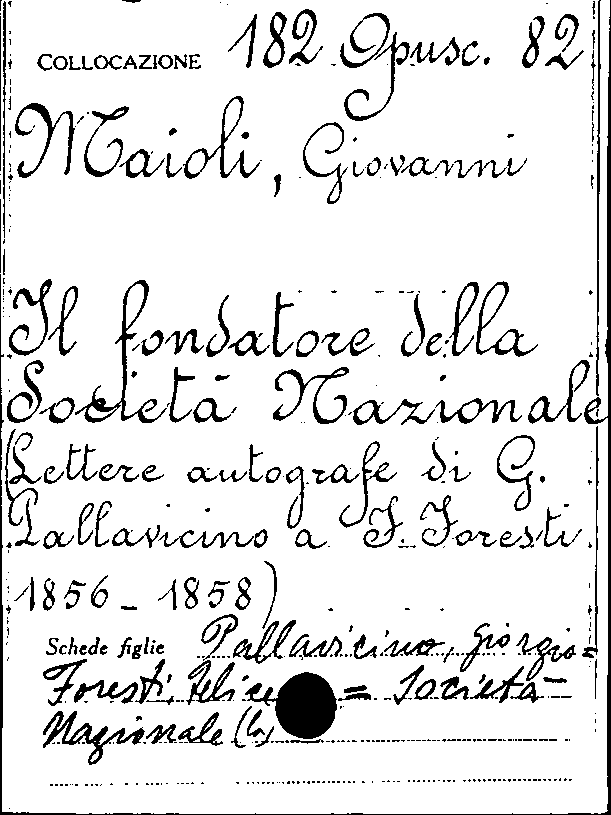 COLLOCAZIONE 182 Opusc. 82
Maioli, Giovanni
Il fondatore della
Società Nazionale
(Lettere autografe di G.
Pallavicino a F. Foresti.
1856 - 1858)
Schede figlie Pallavicino, Giorgio =
Foresti, Felice = Società
Nazionale (la)